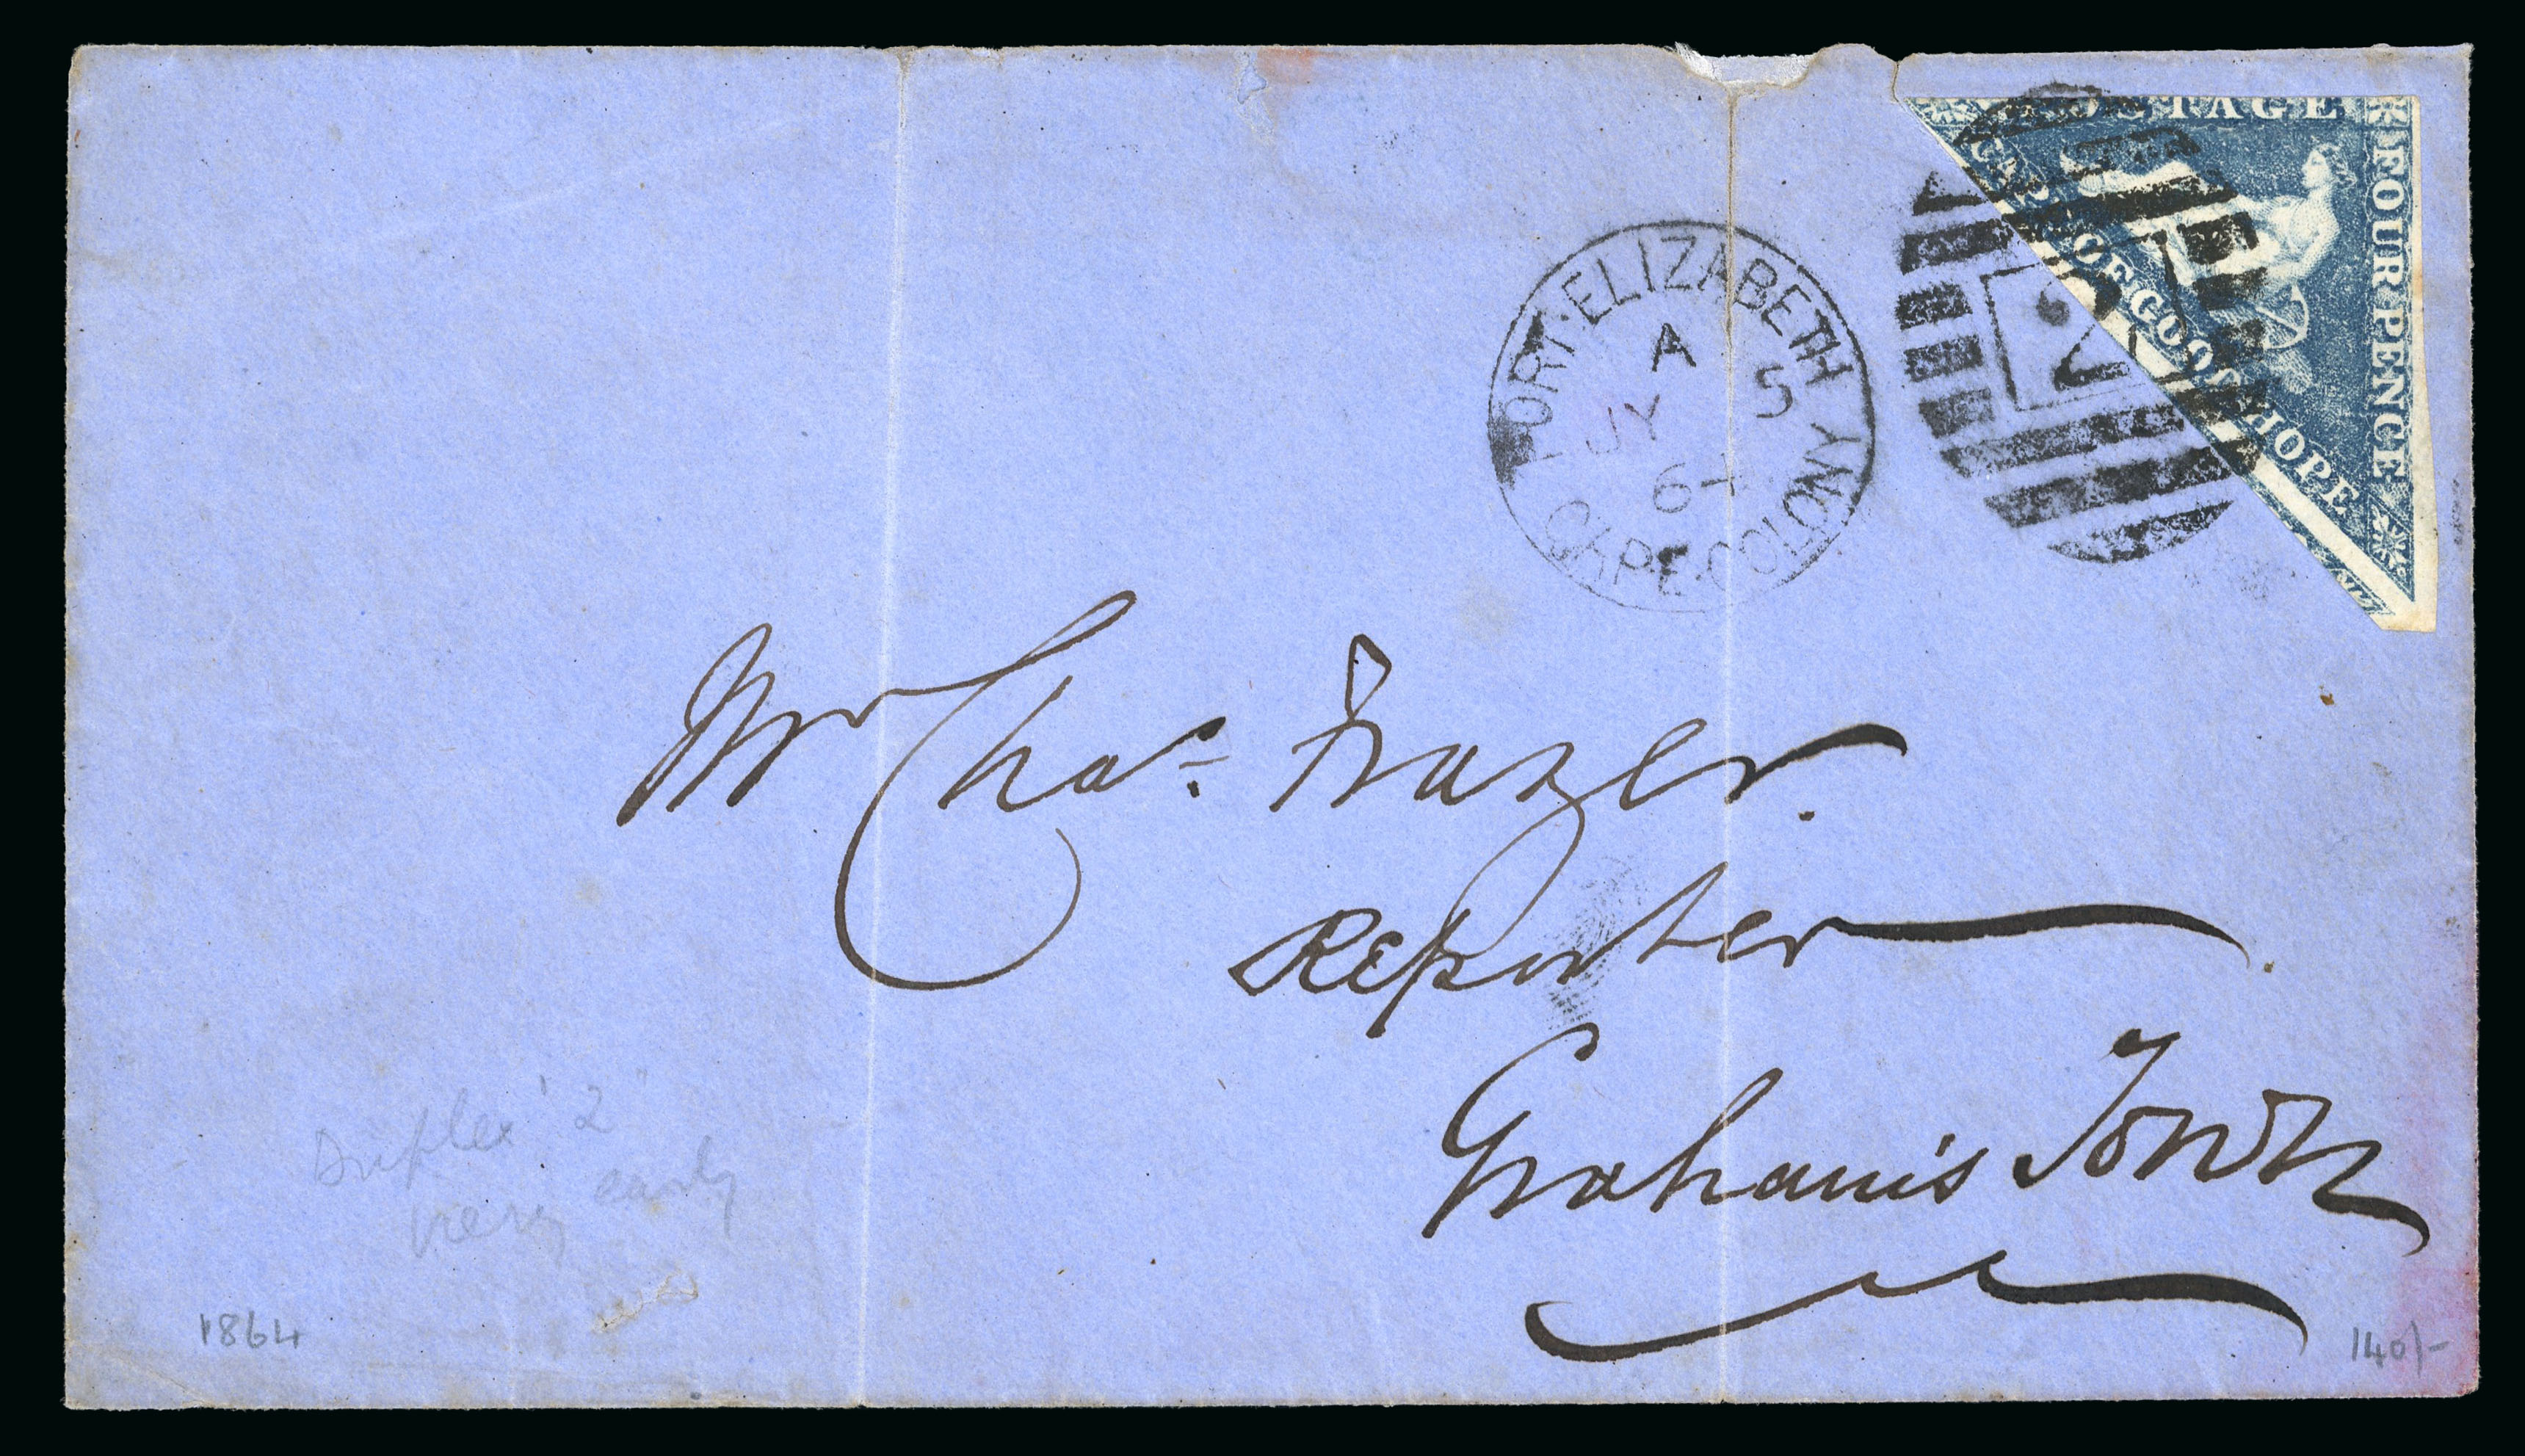 POSTAGE
FOUR PENCE
CAPE OF GOOD HOPE
PORT·ELIZABETH
A
JY 5
64
CAPE·COLONY
2
Mr Chas. Frazer.
Reporter
Graham's Town
Duplex "2"
very early
1864
140/-